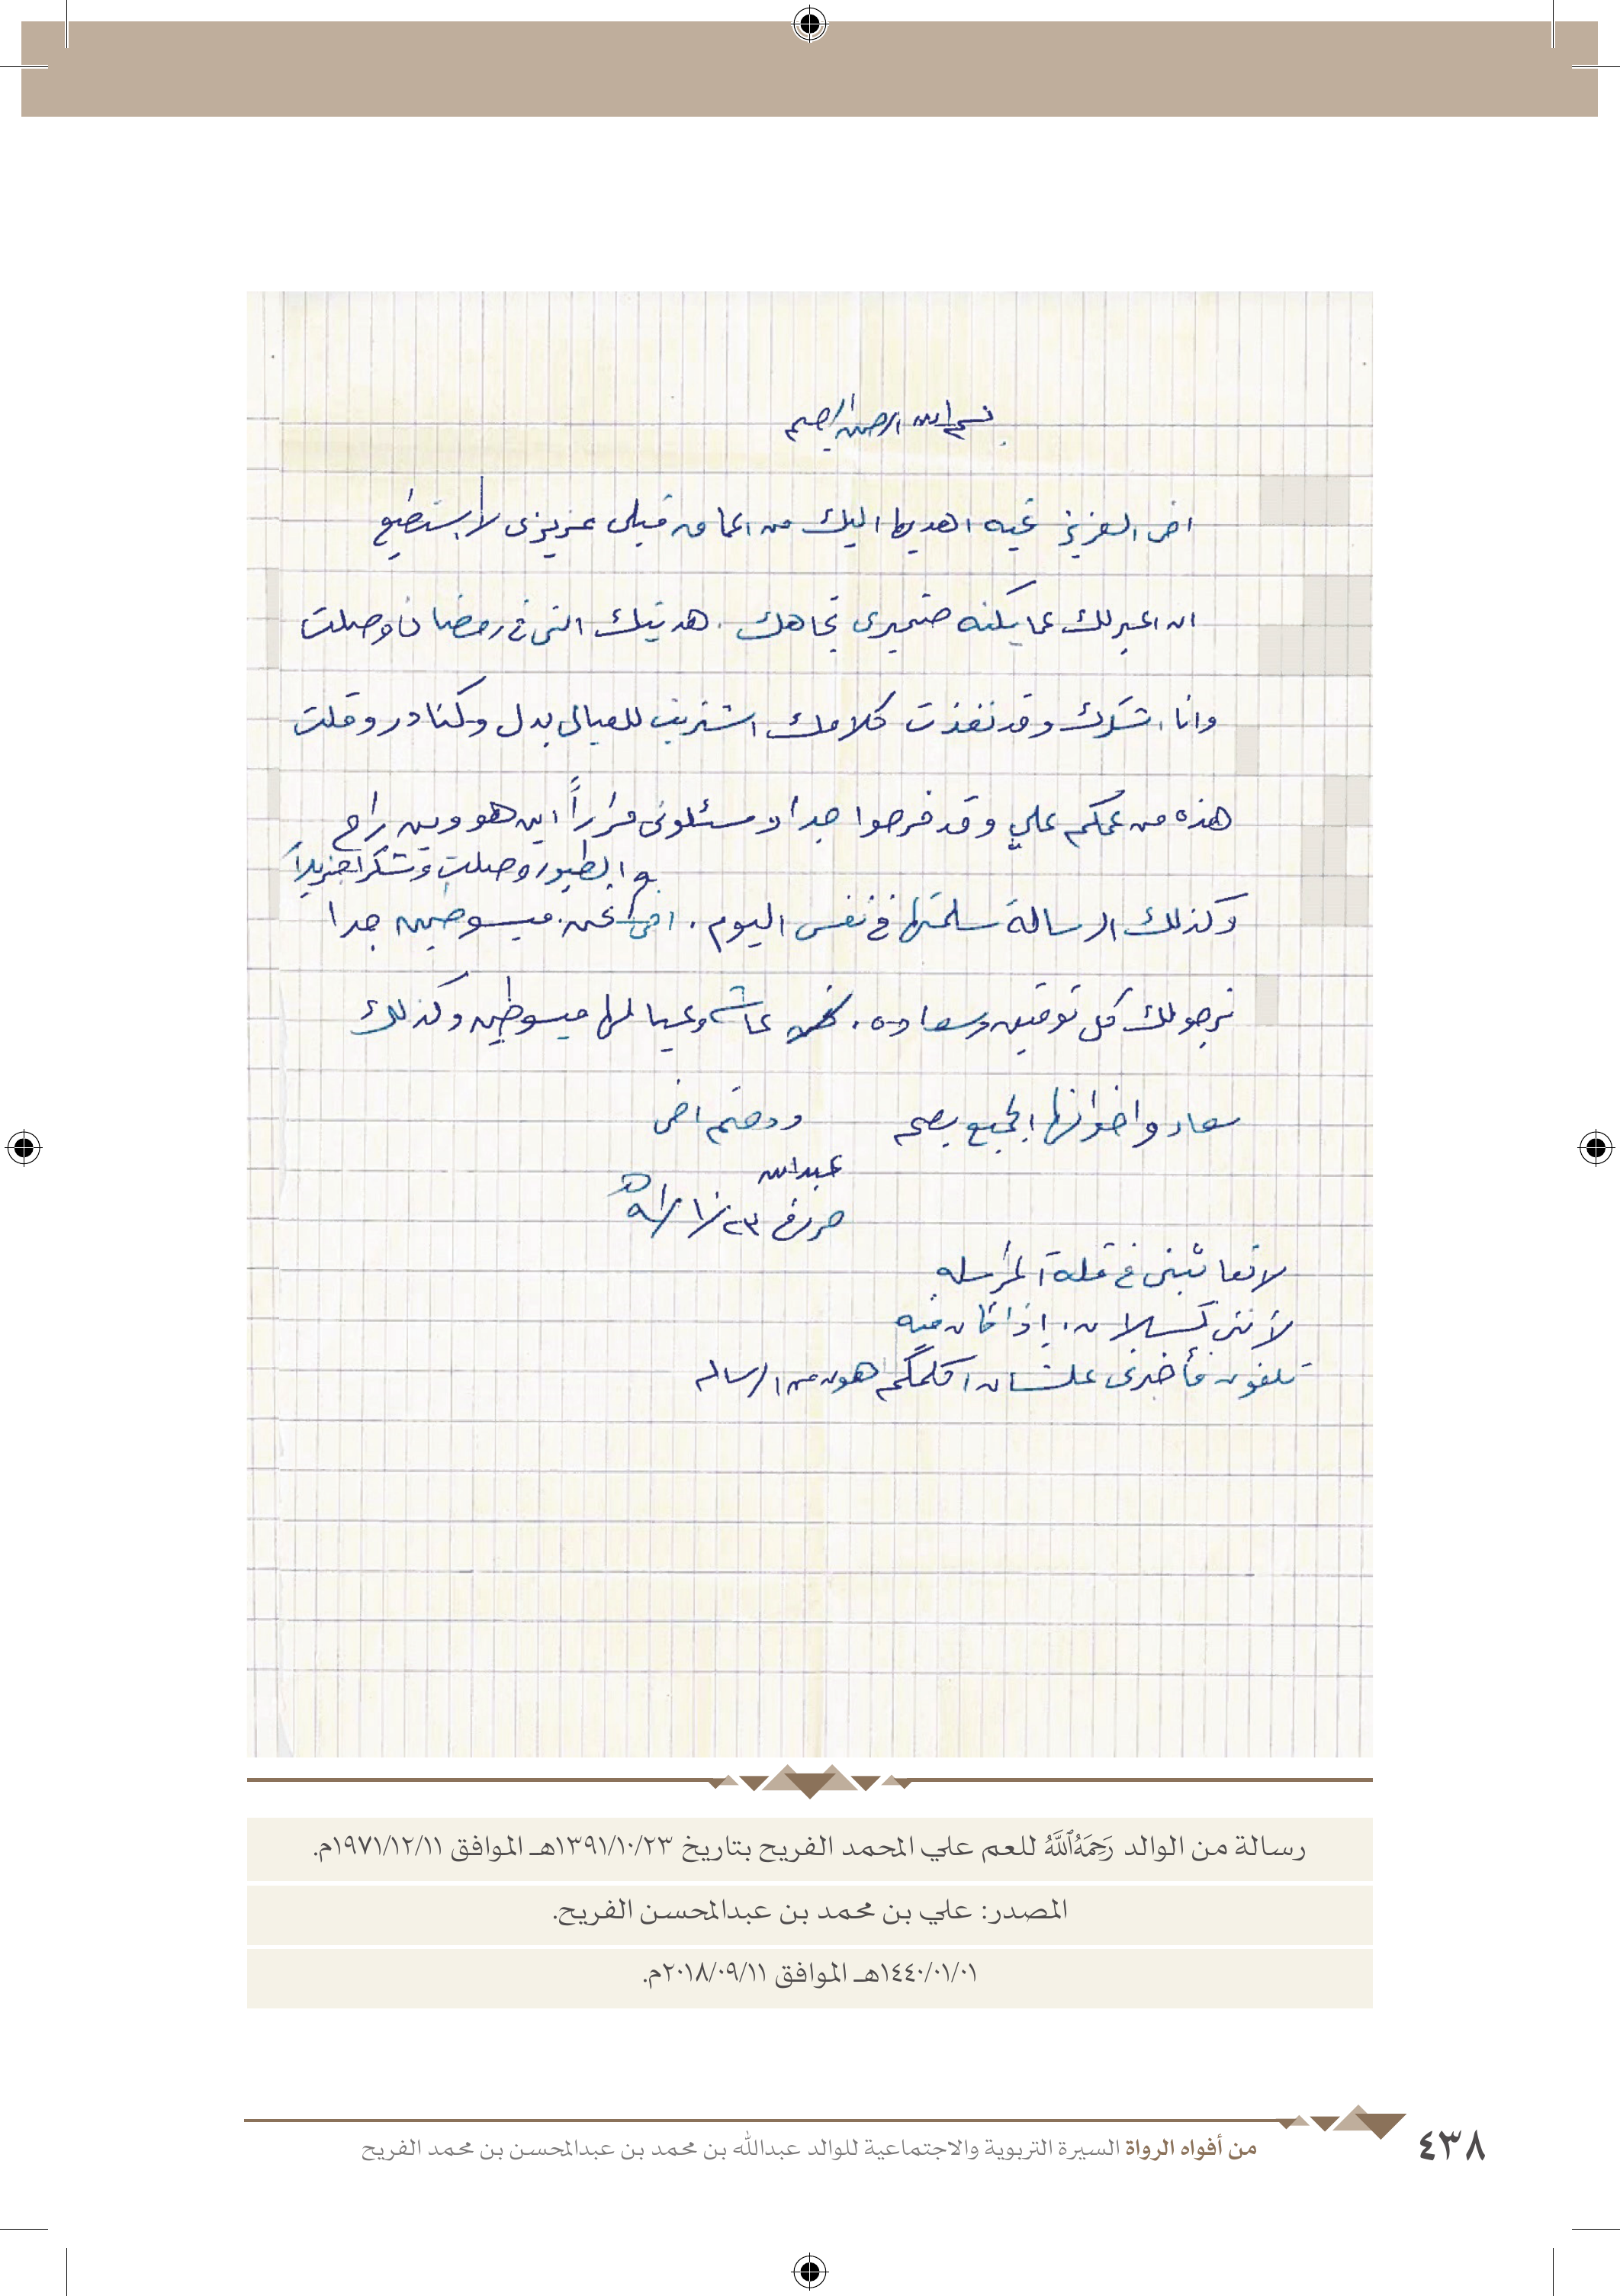 بسم الله الرحمن الرحيم
اخي العزيز تحيه اهديها اليك من اعماق قلبي عزيزي لا استطيع
ان اعبر لك عما يكنه ضميري تجاهك . هديتك التي في رمضان وصلت
وانا اشكرك وقد نفذت كلامك اشتريت للعيال بدل وكنادر وقلت
هذه من عمكم علي وقد فرحوا جدا ومسئلوني مراراً اين هو وين راح
والطيور وصلت وشكرا جزيلاً
وكذلك الرسالة سلمتها في نفس اليوم . اخي نحن مبسوطين جدا
نرجو لك كل توفيق وسعاده . عائشه وعيالها مبسوطين وكذلك
سعاد واخوانها الجميع بصحه ودمتم اخي
عبدالله
حرر في ٢٣/١٠/٩١ هـ
لا تعاتبني في قلة المراسله
لأنني كسلان . إذا كان فيه
تلفون فأخبرني علشان اكلمكم اهون من الرساله
رسالة من الوالد رَحِمَهُ ٱللَّهُ للعم علي المحمد الفريح بتاريخ ١٣٩١/١٠/٢٣هـ الموافق ١٩٧١/١٢/١١م.
المصدر: علي بن محمد بن عبدالمحسن الفريح.
١٤٤٠/٠١/٠١هـ الموافق ٢٠١٨/٠٩/١١م.
من أفواه الرواة السيرة التربوية والاجتماعية للوالد عبدالله بن محمد بن عبدالمحسن بن محمد الفريح
٤٣٨